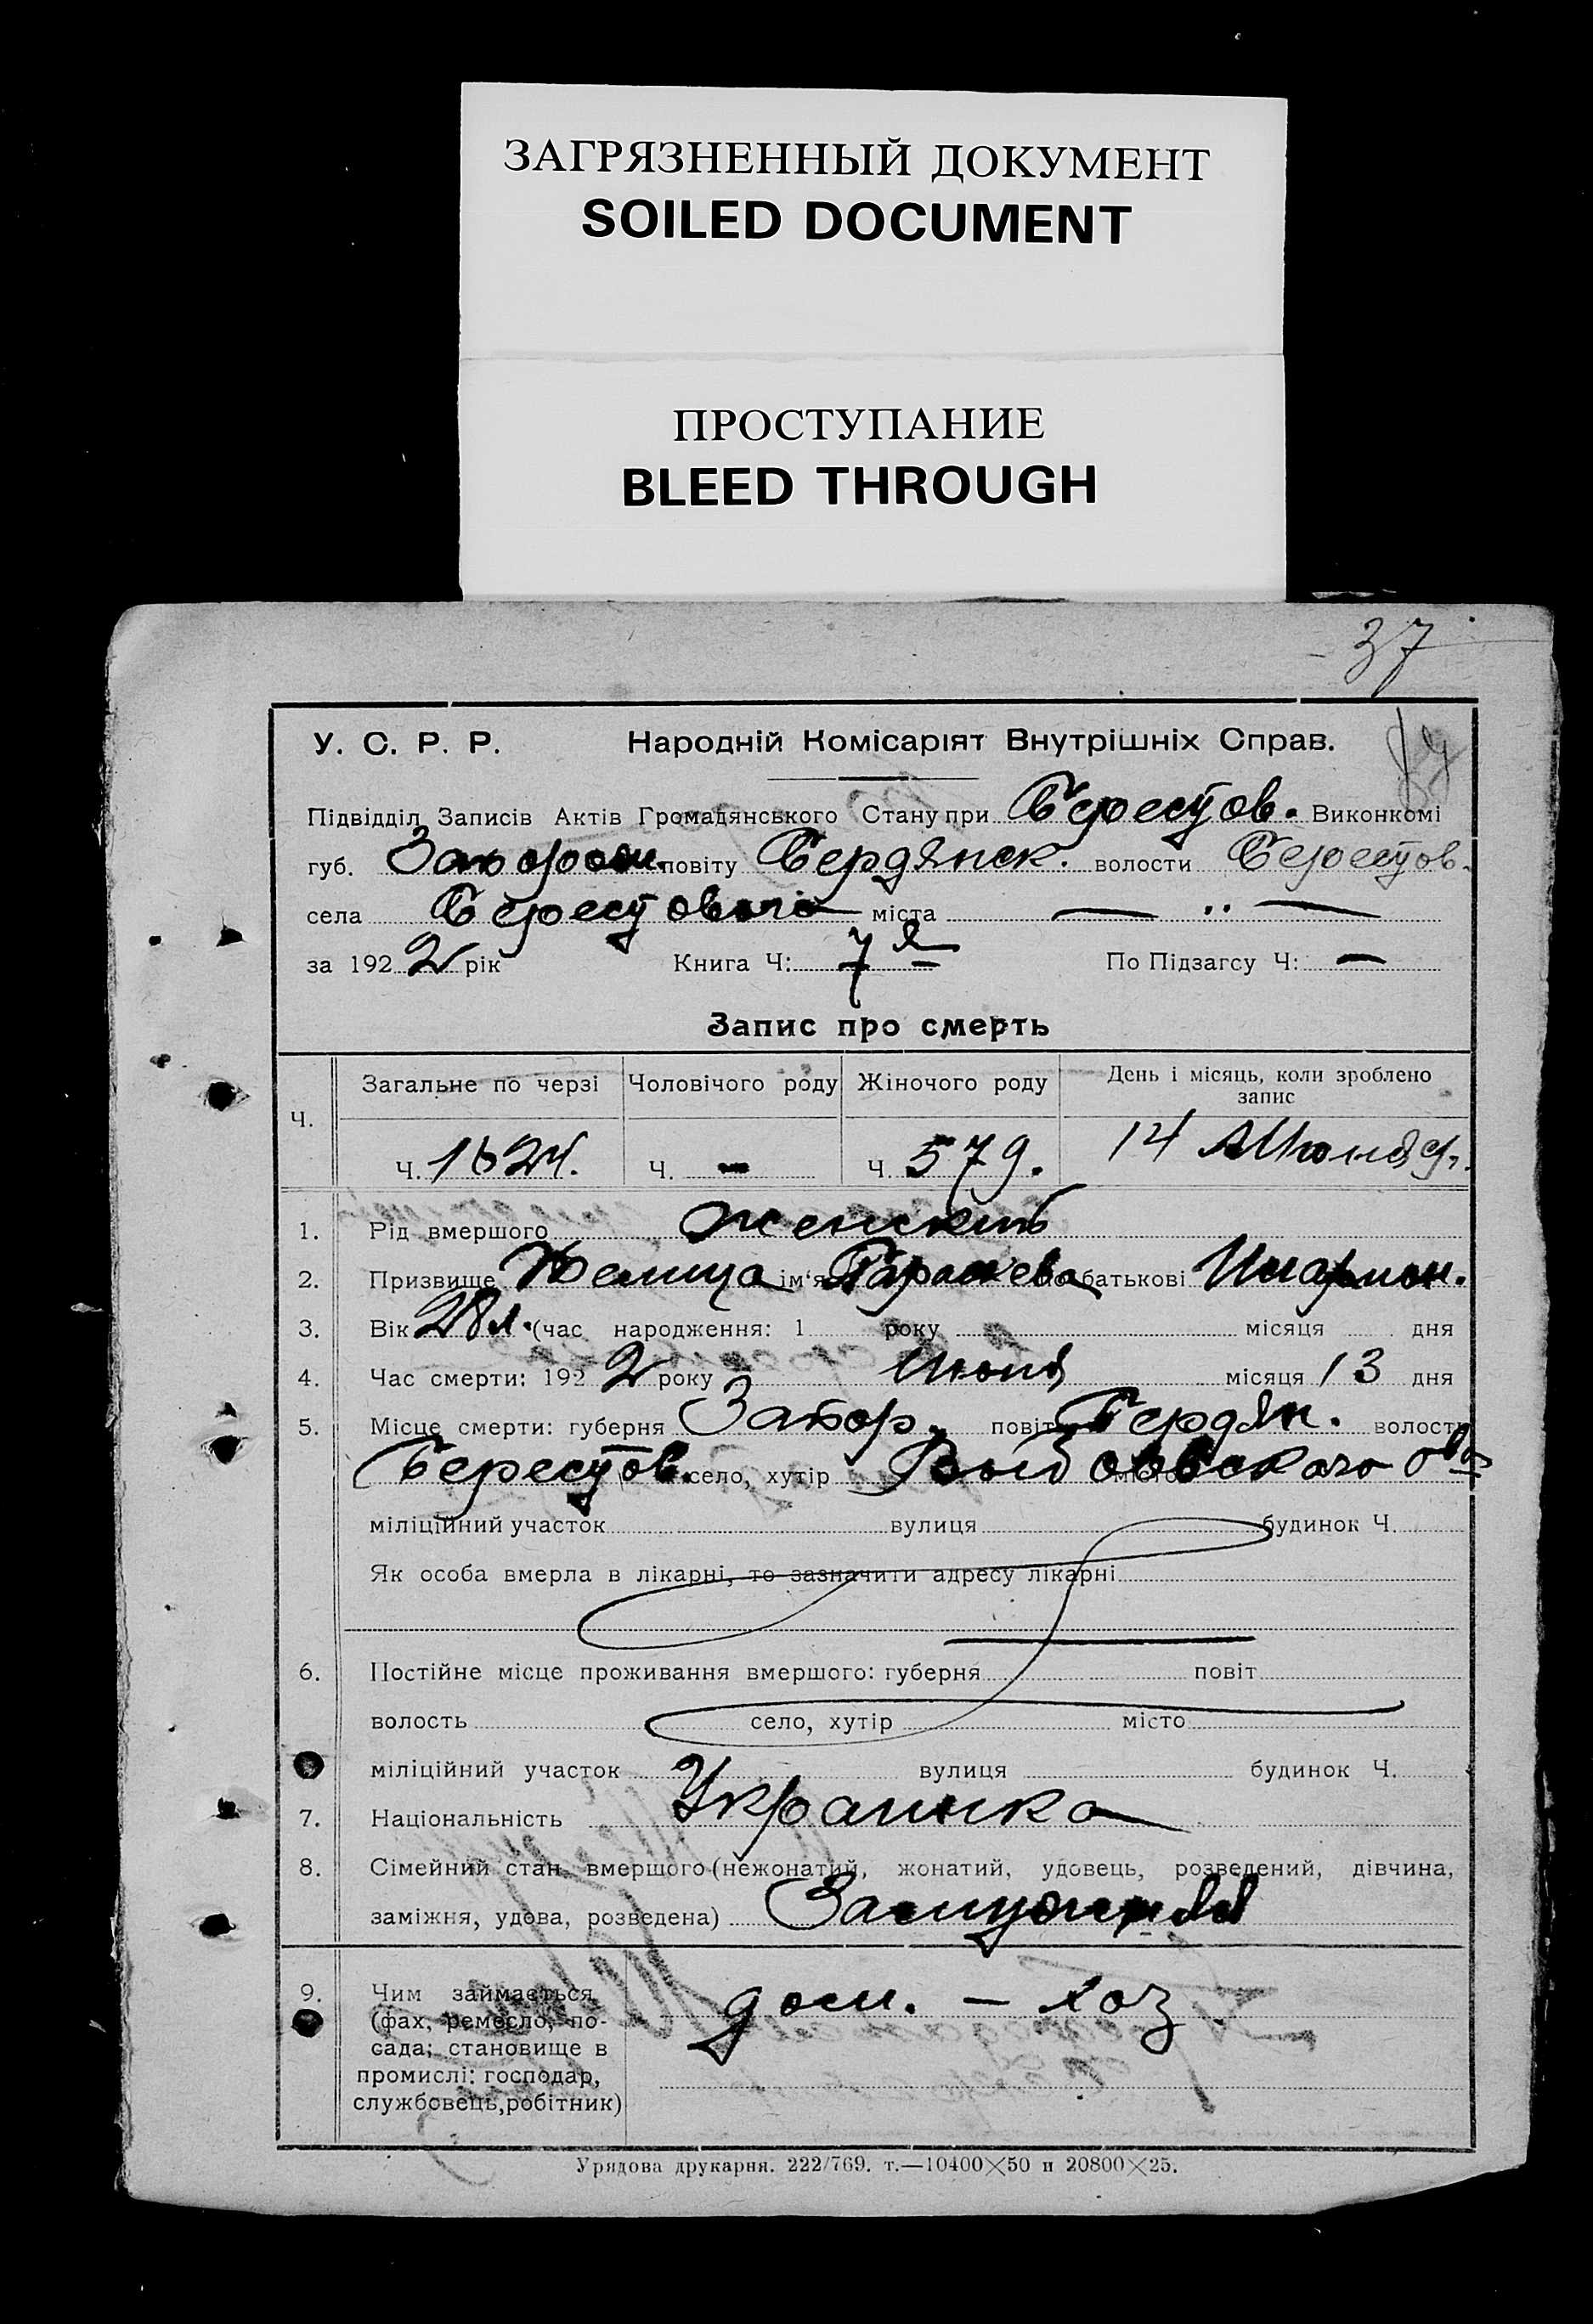 ЗАГРЯЗНЕННЫЙ ДОКУМЕНТ
SOILED DOCUMENT
ПРОСТУПАНИЕ
BLEED THROUGH
37
У. С. Р. Р. Народній Комісаріят Внутрішніх Справ.
Підвідділ Записів Актів Громадянського Стану при Берестов. Виконкомі
губ. Запорож. повіту Бердянск. волости Берестов.
села Берестового міста — „ —
за 1922 рік Книга Ч: 7я По Підзагсу Ч: —
Запис про смерть
Ч. Загальне по черзі Чоловічого роду Жіночого роду День і місяць, коли зроблено запис
Ч. 1624. Ч. - Ч. 579. 14 Июня
1. Рід вмершого женскій
2. Призвище ім'я Параскева по батькові
3. Вік 28 л. (час народження: 1 року місяця дня
4. Час смерти: 1922 року Июня місяця 13 дня
5. Місце смерти: губерня Запор. повіт Бердян. волость
Берестов. село, хутір місто
міліційний участок вулиця будинок Ч.
Як особа вмерла в лікарні, то зазначити адресу лікарні
6. Постійне місце проживання вмершого: губерня повіт
волость село, хутір місто
міліційний участок вулиця будинок Ч.
7. Національність Украинка
8. Сімейний стан вмершого (нежонатий, жонатий, удовець, розведений, дівчина,
заміжня, удова, розведена) Замужняя
9. Чим займається дом. — хоз.
(фах, ремесло, по-
сада; становище в
промислі: господар,
службовець, робітник)
Урядова друкарня. 222/769. т.—10400×50 и 20800×25.